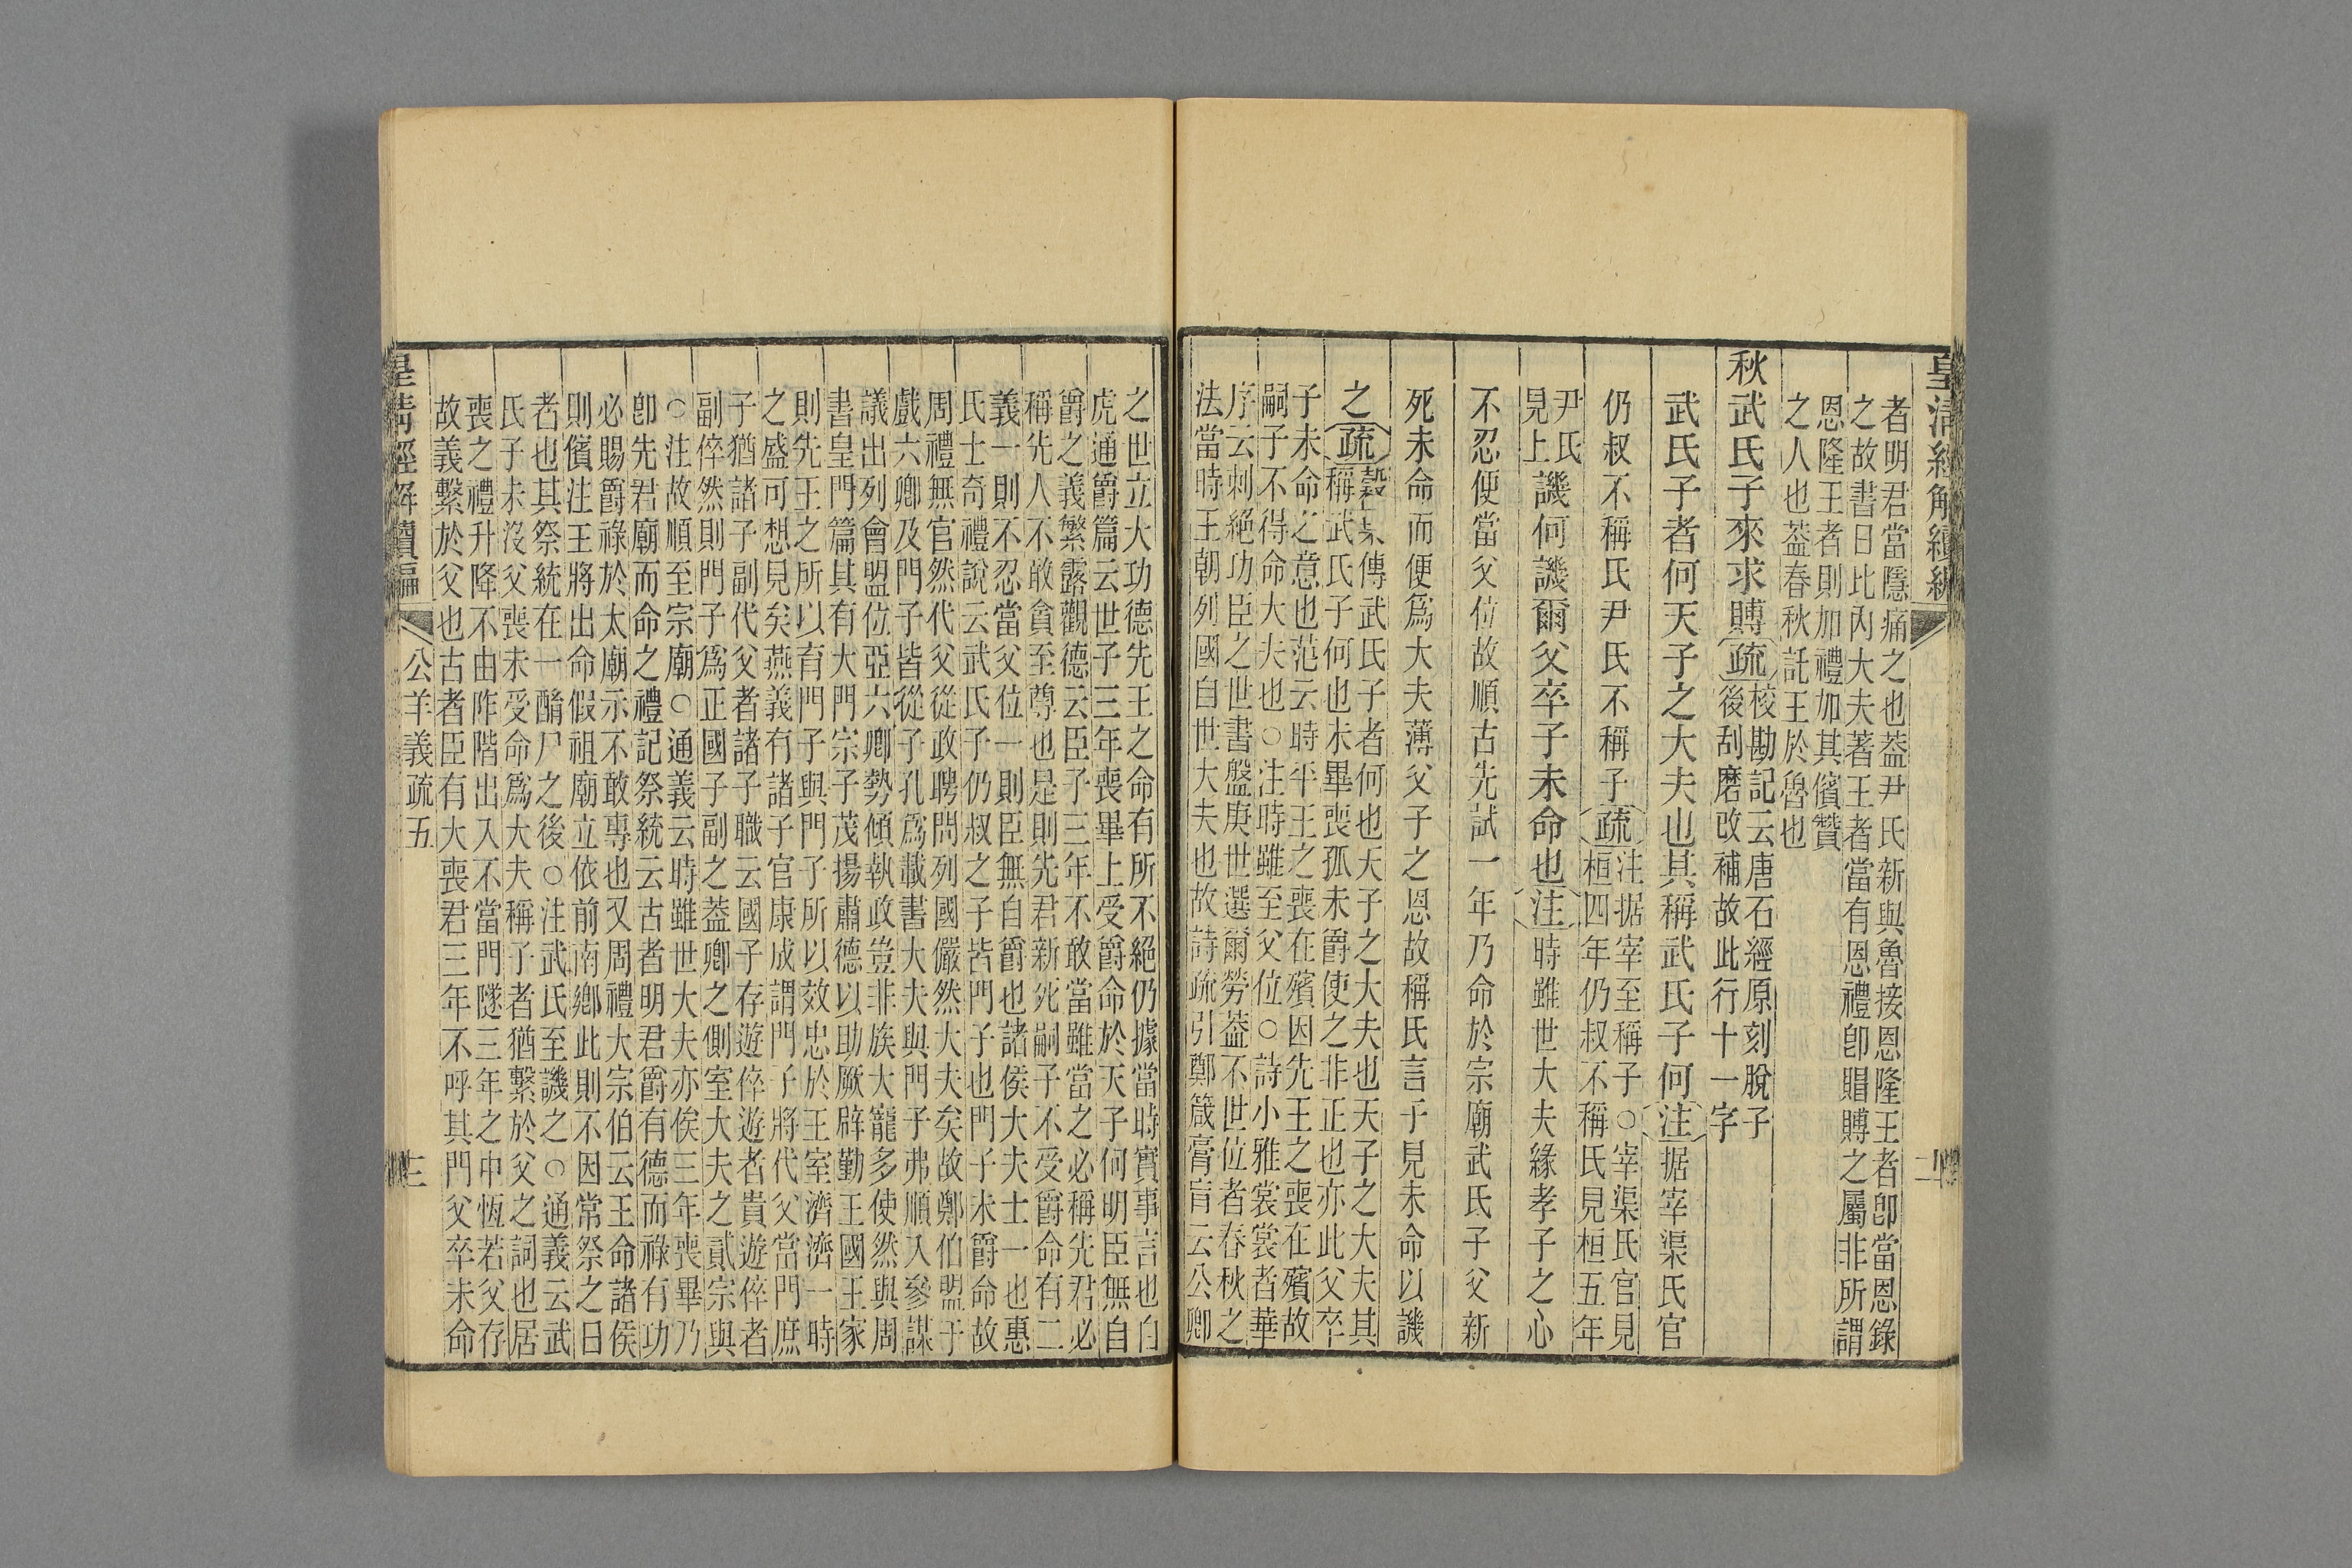 皇清經解續編
者明君當隱痛之也葢尹氏新與魯接恩隆王者卽當恩錄
之故書日比內大夫著王者當有恩禮卽賵賻之屬非所謂
恩隆王者則加禮加其儐贊
之人也葢春秋託王於魯也
秋武氏子來求賻疏
校勘記云唐石經原刻脫子
後刮磨改補故此行十一字
武氏子者何天子之大夫也其稱武氏子何注据宰渠氏官
仍叔不稱氏尹氏不稱子疏
注据宰至稱子○宰渠氏官見
桓四年仍叔不稱氏見桓五年
尹氏
見上
譏何譏爾父卒子未命也注時雖世大夫緣孝子之心
不忍便當父位故順古先試一年乃命於宗廟武氏子父新
死未命而便爲大夫薄父子之恩故稱氏言子見未命以譏
之疏
穀梁傳武氏子者何也天子之大夫也天子之大夫其
稱武氏子何也未畢喪孤未爵使之非正也亦此父卒
子未命之意也范云時平王之喪在殯因先王之喪在殯故
嗣子不得命大夫也○注時雖至父位○詩小雅裳裳者華
序云刺絕功臣之世書盤庚世選爾勞葢不世位者春秋之
法當時王朝列國自世大夫也故詩疏引鄭箴膏肓云公卿
之世立大功德先王之命有所不絕仍據當時實事言也白
虎通爵篇云世子三年喪畢上受爵命於天子何明臣無自
爵之義繁露觀德云臣子三年不敢當雖當之必稱先君必
稱先人不敢貪至尊也是則先君新死嗣子不受爵命有二
義一則不忍當父位一則臣無自爵也諸侯大夫士一也惠
氏士奇禮說云武氏子仍叔之子皆門子也門子未爵命故
周禮無官然代父從政聘問列國儼然大夫矣故鄭伯盟于
戲六卿及門子皆從子孔爲載書大夫與門子弗順入參謀
議出列會盟位亞六卿勢傾執政豈非族大寵多使然與周
書皇門篇其有大門宗子茂揚肅德以助厥辟勤王國王家
則先王之所以育門子與門子所以效忠於王室濟濟一時
之盛可想見矣燕義有諸子官康成謂門子將代父當門庶
子猶諸子副代父者諸子職云國子存遊倅遊者貴遊倅者
副倅然則門子爲正國子副之葢卿之側室大夫之貳宗與
○注故順至宗廟○通義云時雖世大夫亦俟三年喪畢乃
卽先君廟而命之禮記祭統云古者明君爵有德而祿有功
必賜爵祿於太廟示不敢專也又周禮大宗伯云王命諸侯
則儐注王將出命假祖廟立依前南鄉此則不因常祭之日
者也其祭統在一酳尸之後○注武氏至譏之○通義云武
氏子未沒父喪未受命爲大夫稱子者猶繫於父之詞也居
喪之禮升降不由阼階出入不當門隧三年之中恆若父存
故義繫於父也古者臣有大喪君三年不呼其門父卒未命
皇清經解續編
公羊義疏五